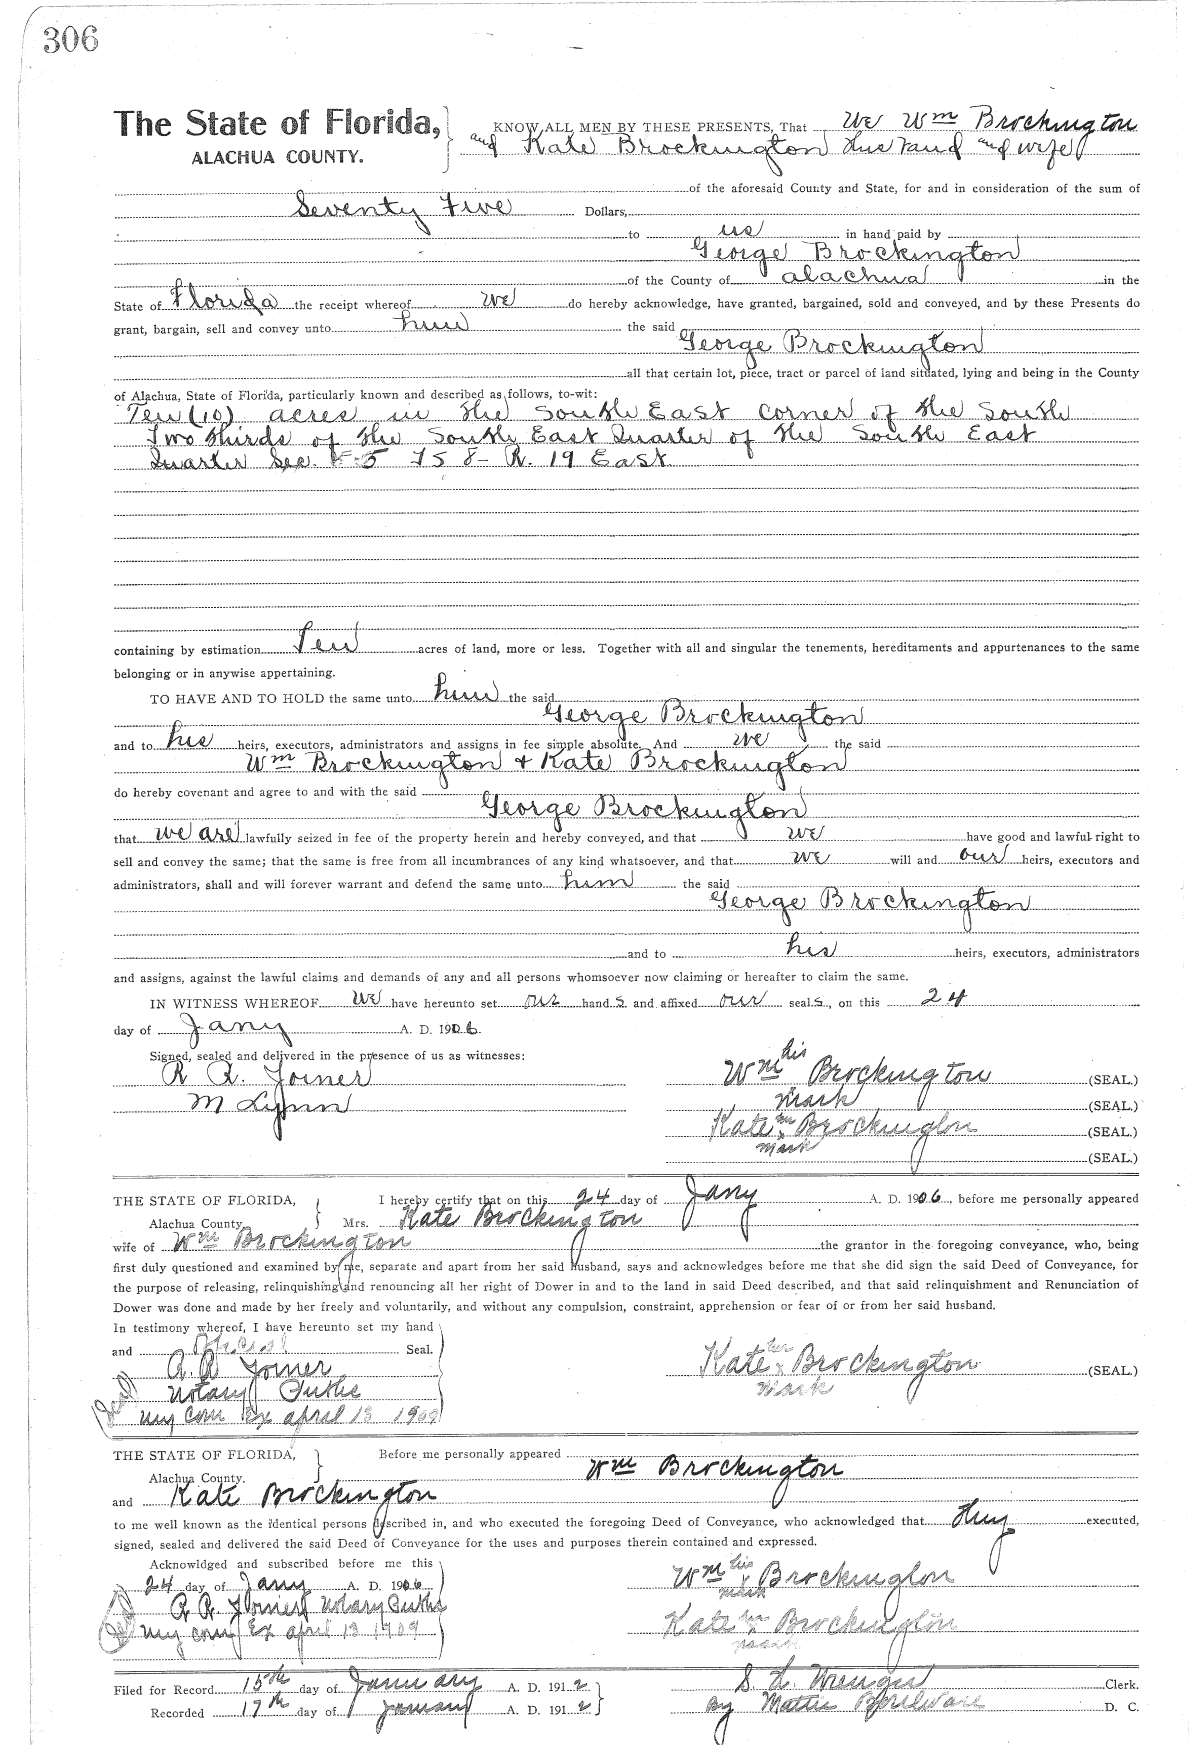 306
The State of Florida, KNOW ALL MEN BY THESE PRESENTS, That We Wm Brockington
ALACHUA COUNTY. and Kate Brockington Husband and wife
of the aforesaid County and State, for and in consideration of the sum of
Seventy Five Dollars,
to us in hand paid by
George Brockington
of the County of Alachua in the
State of Florida the receipt whereof we do hereby acknowledge, have granted, bargained, sold and conveyed, and by these Presents do
grant, bargain, sell and convey unto him the said
George Brockington
all that certain lot, piece, tract or parcel of land situated, lying and being in the County
of Alachua, State of Florida, particularly known and described as follows, to-wit:
Ten (10) acres in the South East corner of the South
Two thirds of the South East Quarter of the South East
Quarter Sec. 5 T S 8 - R. 19 East
containing by estimation Ten acres of land, more or less. Together with all and singular the tenements, hereditaments and appurtenances to the same
belonging or in anywise appertaining.
TO HAVE AND TO HOLD the same unto him the said
George Brockington
and to his heirs, executors, administrators and assigns in fee simple absolute. And we the said
Wm Brockington + Kate Brockington
do hereby covenant and agree to and with the said
George Brockington
that we are lawfully seized in fee of the property herein and hereby conveyed, and that we have good and lawful right to
sell and convey the same; that the same is free from all incumbrances of any kind whatsoever, and that we will and our heirs, executors and
administrators, shall and will forever warrant and defend the same unto him the said
George Brockington
and to his heirs, executors, administrators
and assigns, against the lawful claims and demands of any and all persons whomsoever now claiming or hereafter to claim the same.
IN WITNESS WHEREOF We have hereunto set our hands and affixed our seals, on this 24
day of Jany A. D. 1906.
Signed, sealed and delivered in the presence of us as witnesses:
R R. Joiner Wm his Brockington (SEAL.)
M Lynn mark (SEAL.)
Kate her x Brockington (SEAL.)
mark (SEAL.)
THE STATE OF FLORIDA, I hereby certify that on this 24 day of Jany A. D. 1906, before me personally appeared
Alachua County Mrs. Kate Brockington
wife of Wm Brockington the grantor in the foregoing conveyance, who, being
first duly questioned and examined by me, separate and apart from her said husband, says and acknowledges before me that she did sign the said Deed of Conveyance, for
the purpose of releasing, relinquishing and renouncing all her right of Dower in and to the land in said Deed described, and that said relinquishment and Renunciation of
Dower was done and made by her freely and voluntarily, and without any compulsion, constraint, apprehension or fear of or from her said husband.
In testimony whereof, I have hereunto set my hand
and Official Seal.
R. R Joiner Kate her x Brockington (SEAL.)
Seal Notary Public mark
My Com Ex April 13 1909
THE STATE OF FLORIDA, Before me personally appeared
Alachua County. Wm Brockington
and Kate Brockington
to me well known as the identical persons described in, and who executed the foregoing Deed of Conveyance, who acknowledged that they executed,
signed, sealed and delivered the said Deed of Conveyance for the uses and purposes therein contained and expressed.
Acknowldged and subscribed before me this
24 day of Jany A. D. 1906 Wm his x mark Brockington
Seal R R. Joiner Notary Public
My com Ex April 13 1909 Kate her x mark Brockington
Filed for Record 15th day of January A. D. 1912 S. H. Wienges Clerk.
Recorded 17th day of January A. D. 1912 By Mattie Boulware D. C.